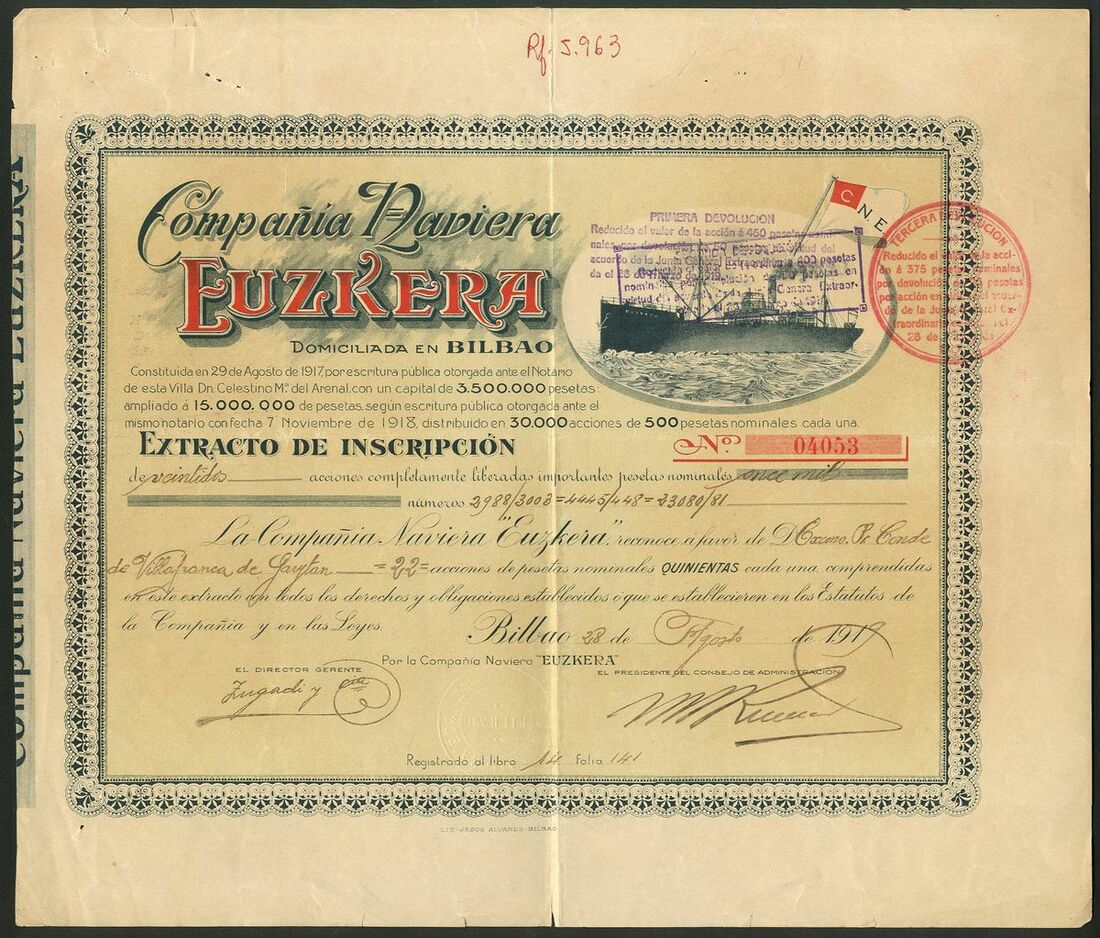 Rf. 5.963
Compañia Naviera
EUZKERA
DOMICILIADA EN BILBAO
Constituida en 29 de Agosto de 1917, por escritura pública otorgada ante el Notario
de esta Villa Dn. Celestino Mª. del Arenal, con un capital de 3.500.000 pesetas;
ampliado á 15.000.000 de pesetas, según escritura pública otorgada ante el
mismo notario con fecha 7 Noviembre de 1918, distribuido en 30.000 acciones de 500 pesetas nominales cada una.
C N E
PRIMERA DEVOLUCION
Reducido el valor de la acción á 450 pesetas nomi-
nales por devolución de 50 pesetas en virtud del
acuerdo de la Junta General Extraordinaria
TERCERA DEVOLUCION
Reducido el valor de la acci-
ón á 375 pesetas nominales
por devolución de pesetas
por acción en
do de la Junta General Ex-
traordinaria
28 de
EXTRACTO DE INSCRIPCIÓN
Nº 04053
de veintidos acciones completamente liberadas importantes pesetas nominales once mil
números 2988/3003=4445/448=23080/81
La Compañia Naviera "Euzkera", reconoce á favor de D Excmo. Sr. Conde
de Villafranca de Gaytan =22= acciones de pesetas nominales QUINIENTAS cada una, comprendidas
en este extracto con todos los derechos y obligaciones establecidos ó que se establecieren en los Estatutos de
la Compañia y en las Leyes.
Bilbao 28 de Agosto de 1919
Por la Compañia Naviera "EUZKERA"
EL DIRECTOR GERENTE
EL PRESIDENTE DEL CONSEJO DE ADMINISTRACION
Zugadi y Cia
Registrado al libro 14 Folio 141
LIT. JESUS ALVAREZ-BILBAO
Compañia Naviera EUZKERA